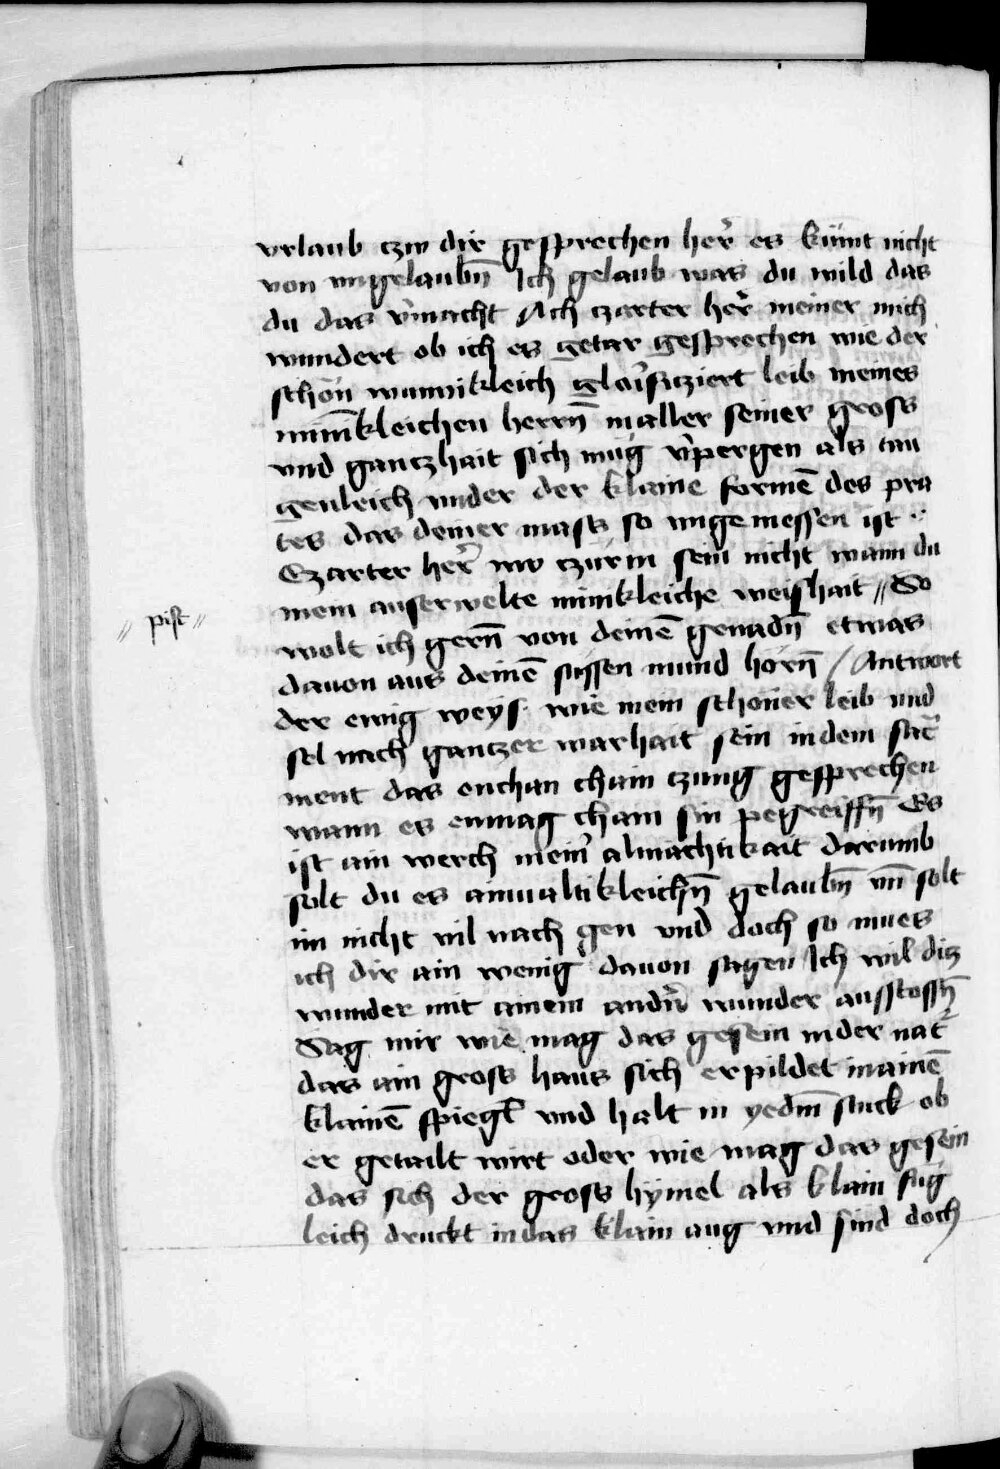 vrlaub czw dir gesprechen her̄ es kümt nicht
von vngelaubn̄ Ich gelaub was du wild das
du das v̄macht Ach czarter her̄ meiner mich
wundert ob ich es getar gesprechen wie der
schön wunnikleich gelorifiziert leib meines
mīnkleichen herrn̄ in aller seiner gross
vnd gantzhait sich müg v̄pergen als tau
genleich vnder der klaine formē des pra
tes das deiner mass so vngemessen ist
Czarter her̄ nw czürn sein nicht wann du
mein auserwelte minikleiche weishait // So
// pist //
wolt ich gern̄ von deinē genadn̄ etwas
dauon aus deinē süssen mund hörn̄ / Antwort
der ewig weys wie mein schöner leib vnd
sel nach gantzer warhait sein in dem sac̄
ment das enchan chain czung gesprechen
wann es enmag chain sin pegreiffn̄ Es
ist ain werch mein̄ almächtikait darumb
solt du es ainualtikleichn̄ gelaubn̄ vn̄ solt
im nicht vil nach gen vnd doch so mues
ich dir ain wenig dauon sagen Ich wil diz
wunder mit ainem andn̄ wunder ausstossn̄
Sag mir wie mag das gesein in der nat̄
das ain gross haus sich erpildet in ainē
klainē spiegl̄ vnd halt in yedm̄ stuck ob
er getailt wirt oder wie mag das gesein
das sich der gross hymel als klain füg
leich druckt in das klain aug vnd sind doch